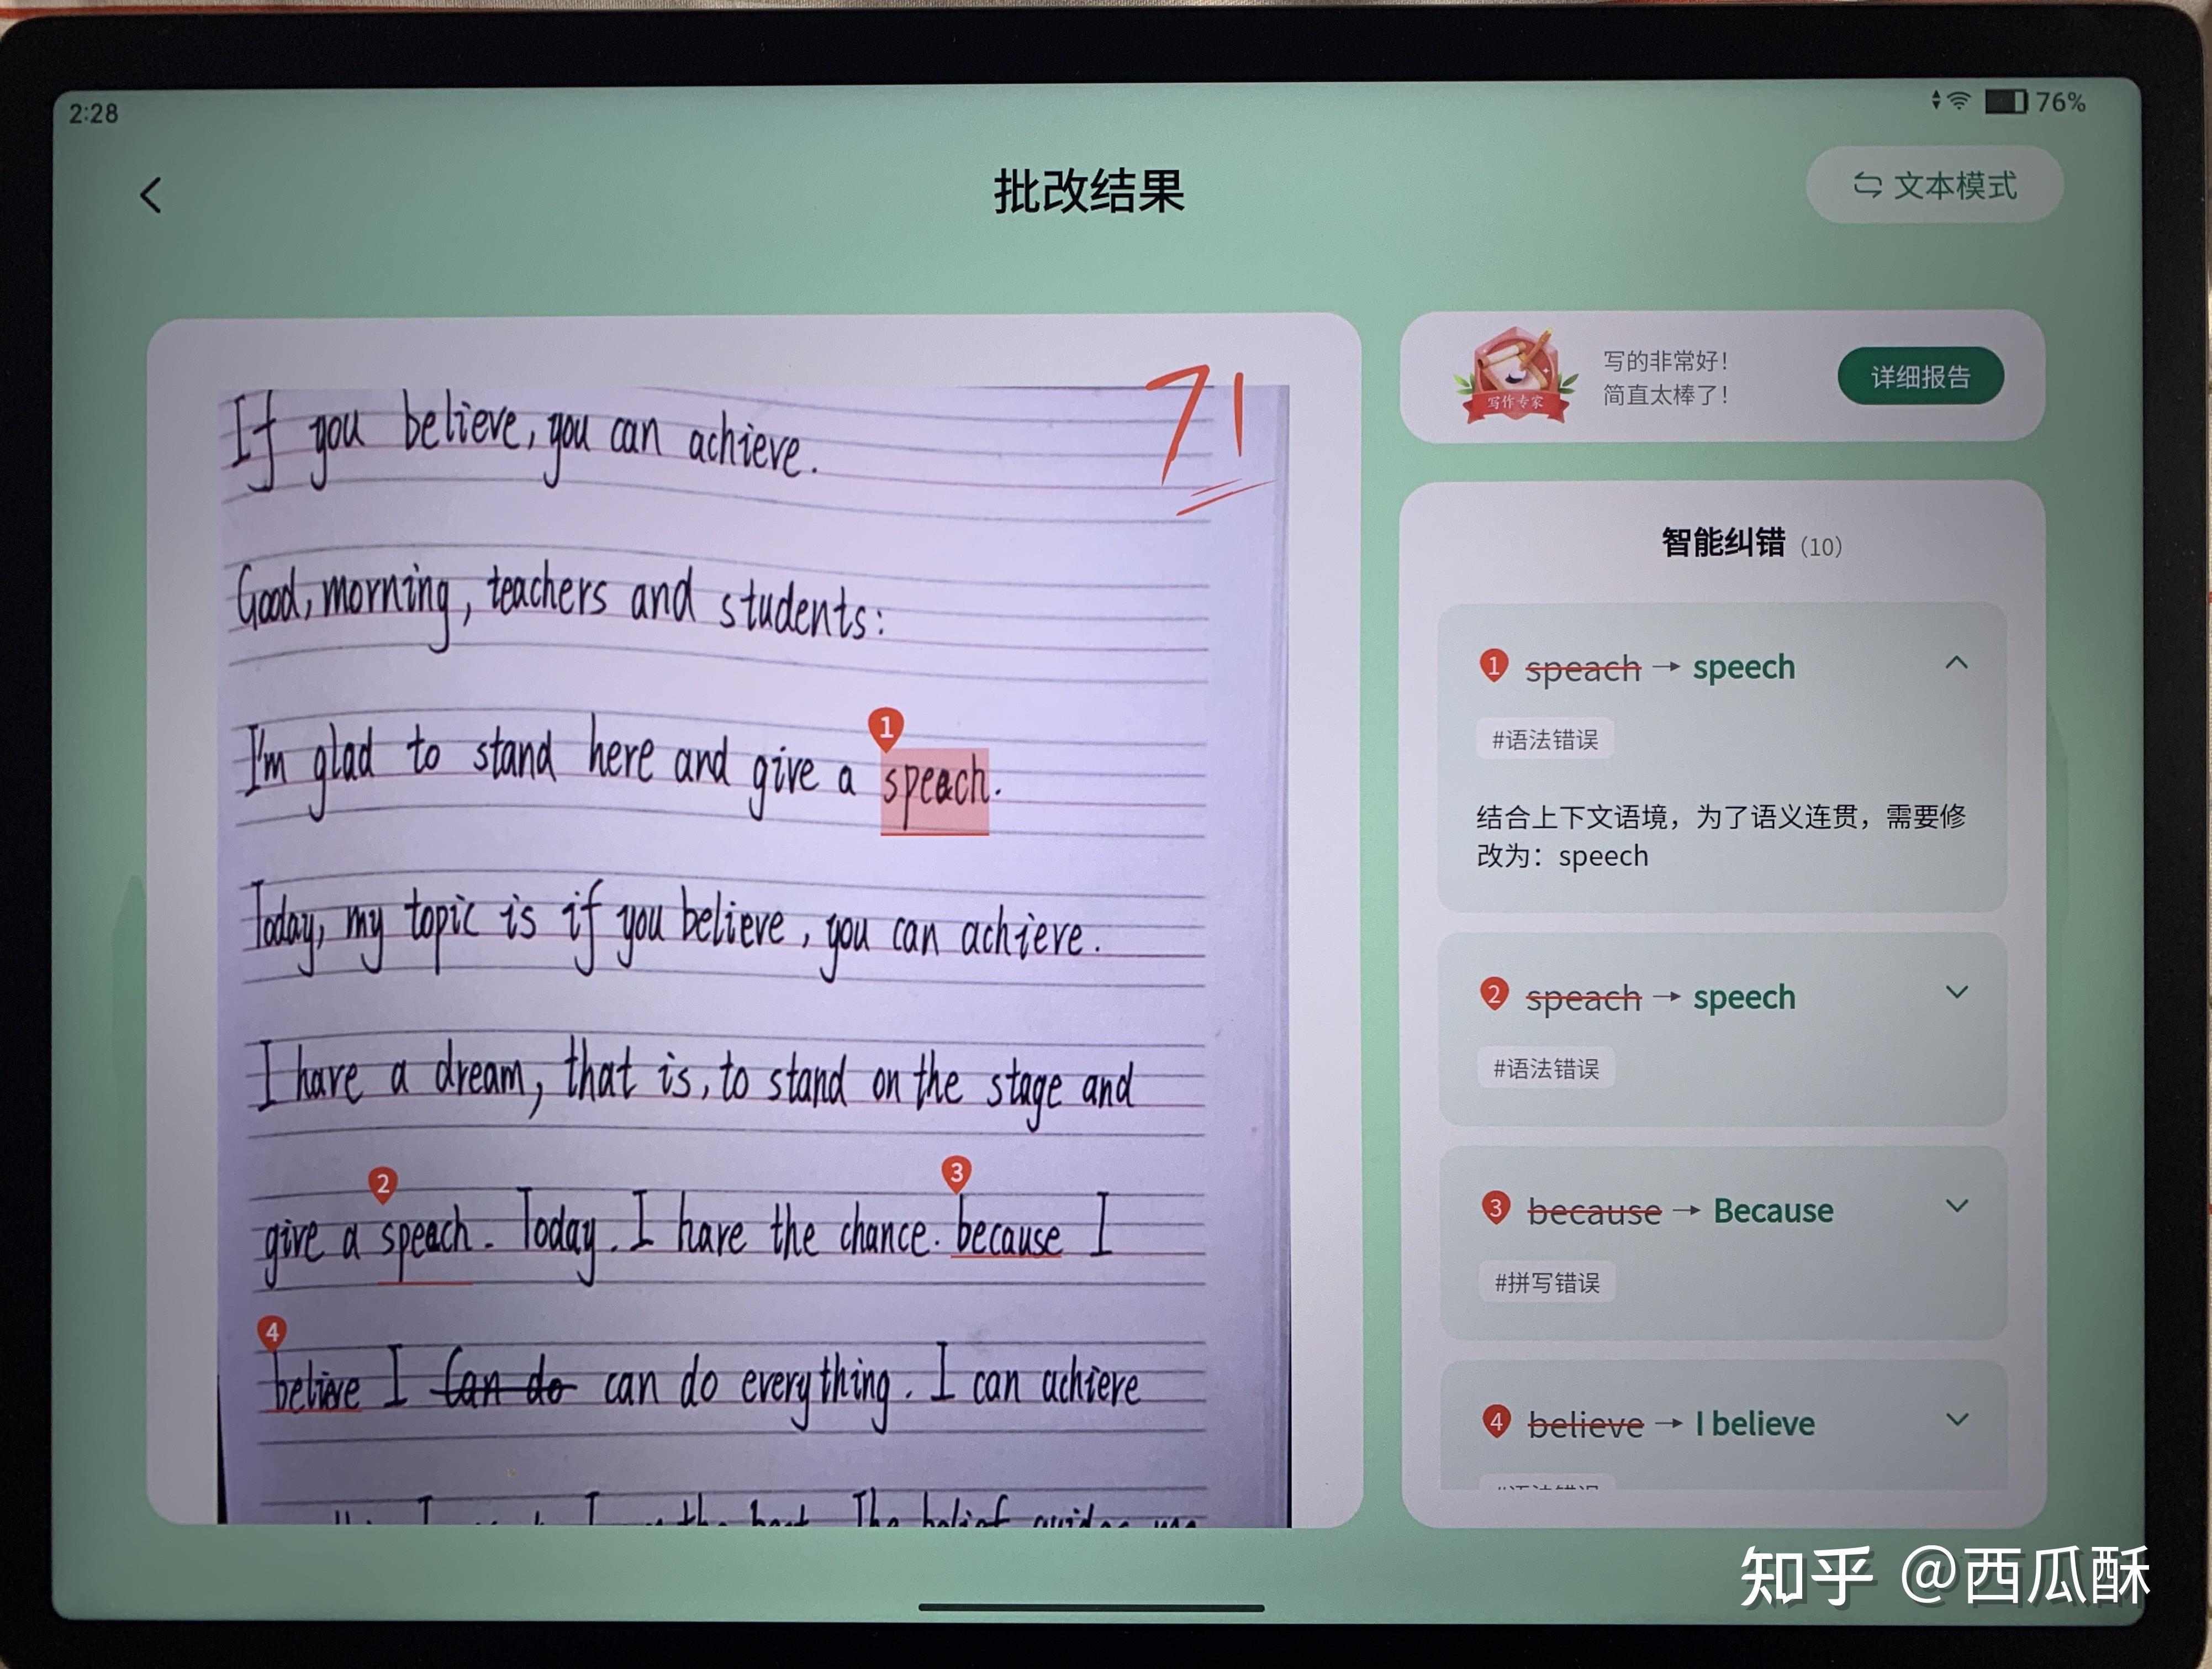 2:28
76%
批改结果
文本模式
71
If you believe, you can achieve.
Good, morning, teachers and students:
1
I'm glad to stand here and give a speach.
Today, my topic is if you believe, you can achieve.
I have a dream, that is, to stand on the stage and
2 3
give a speach. Today. I have the chance. because I
4
believe I can do can do everything. I can achieve
I the best. The belief guides me
写作专家
写的非常好！
简直太棒了！
详细报告
智能纠错（10）
1 speach → speech
#语法错误
结合上下文语境，为了语义连贯，需要修
改为：speech
2 speach → speech
#语法错误
3 because → Because
#拼写错误
4 believe → I believe
#语法错误
知乎 @西瓜酥